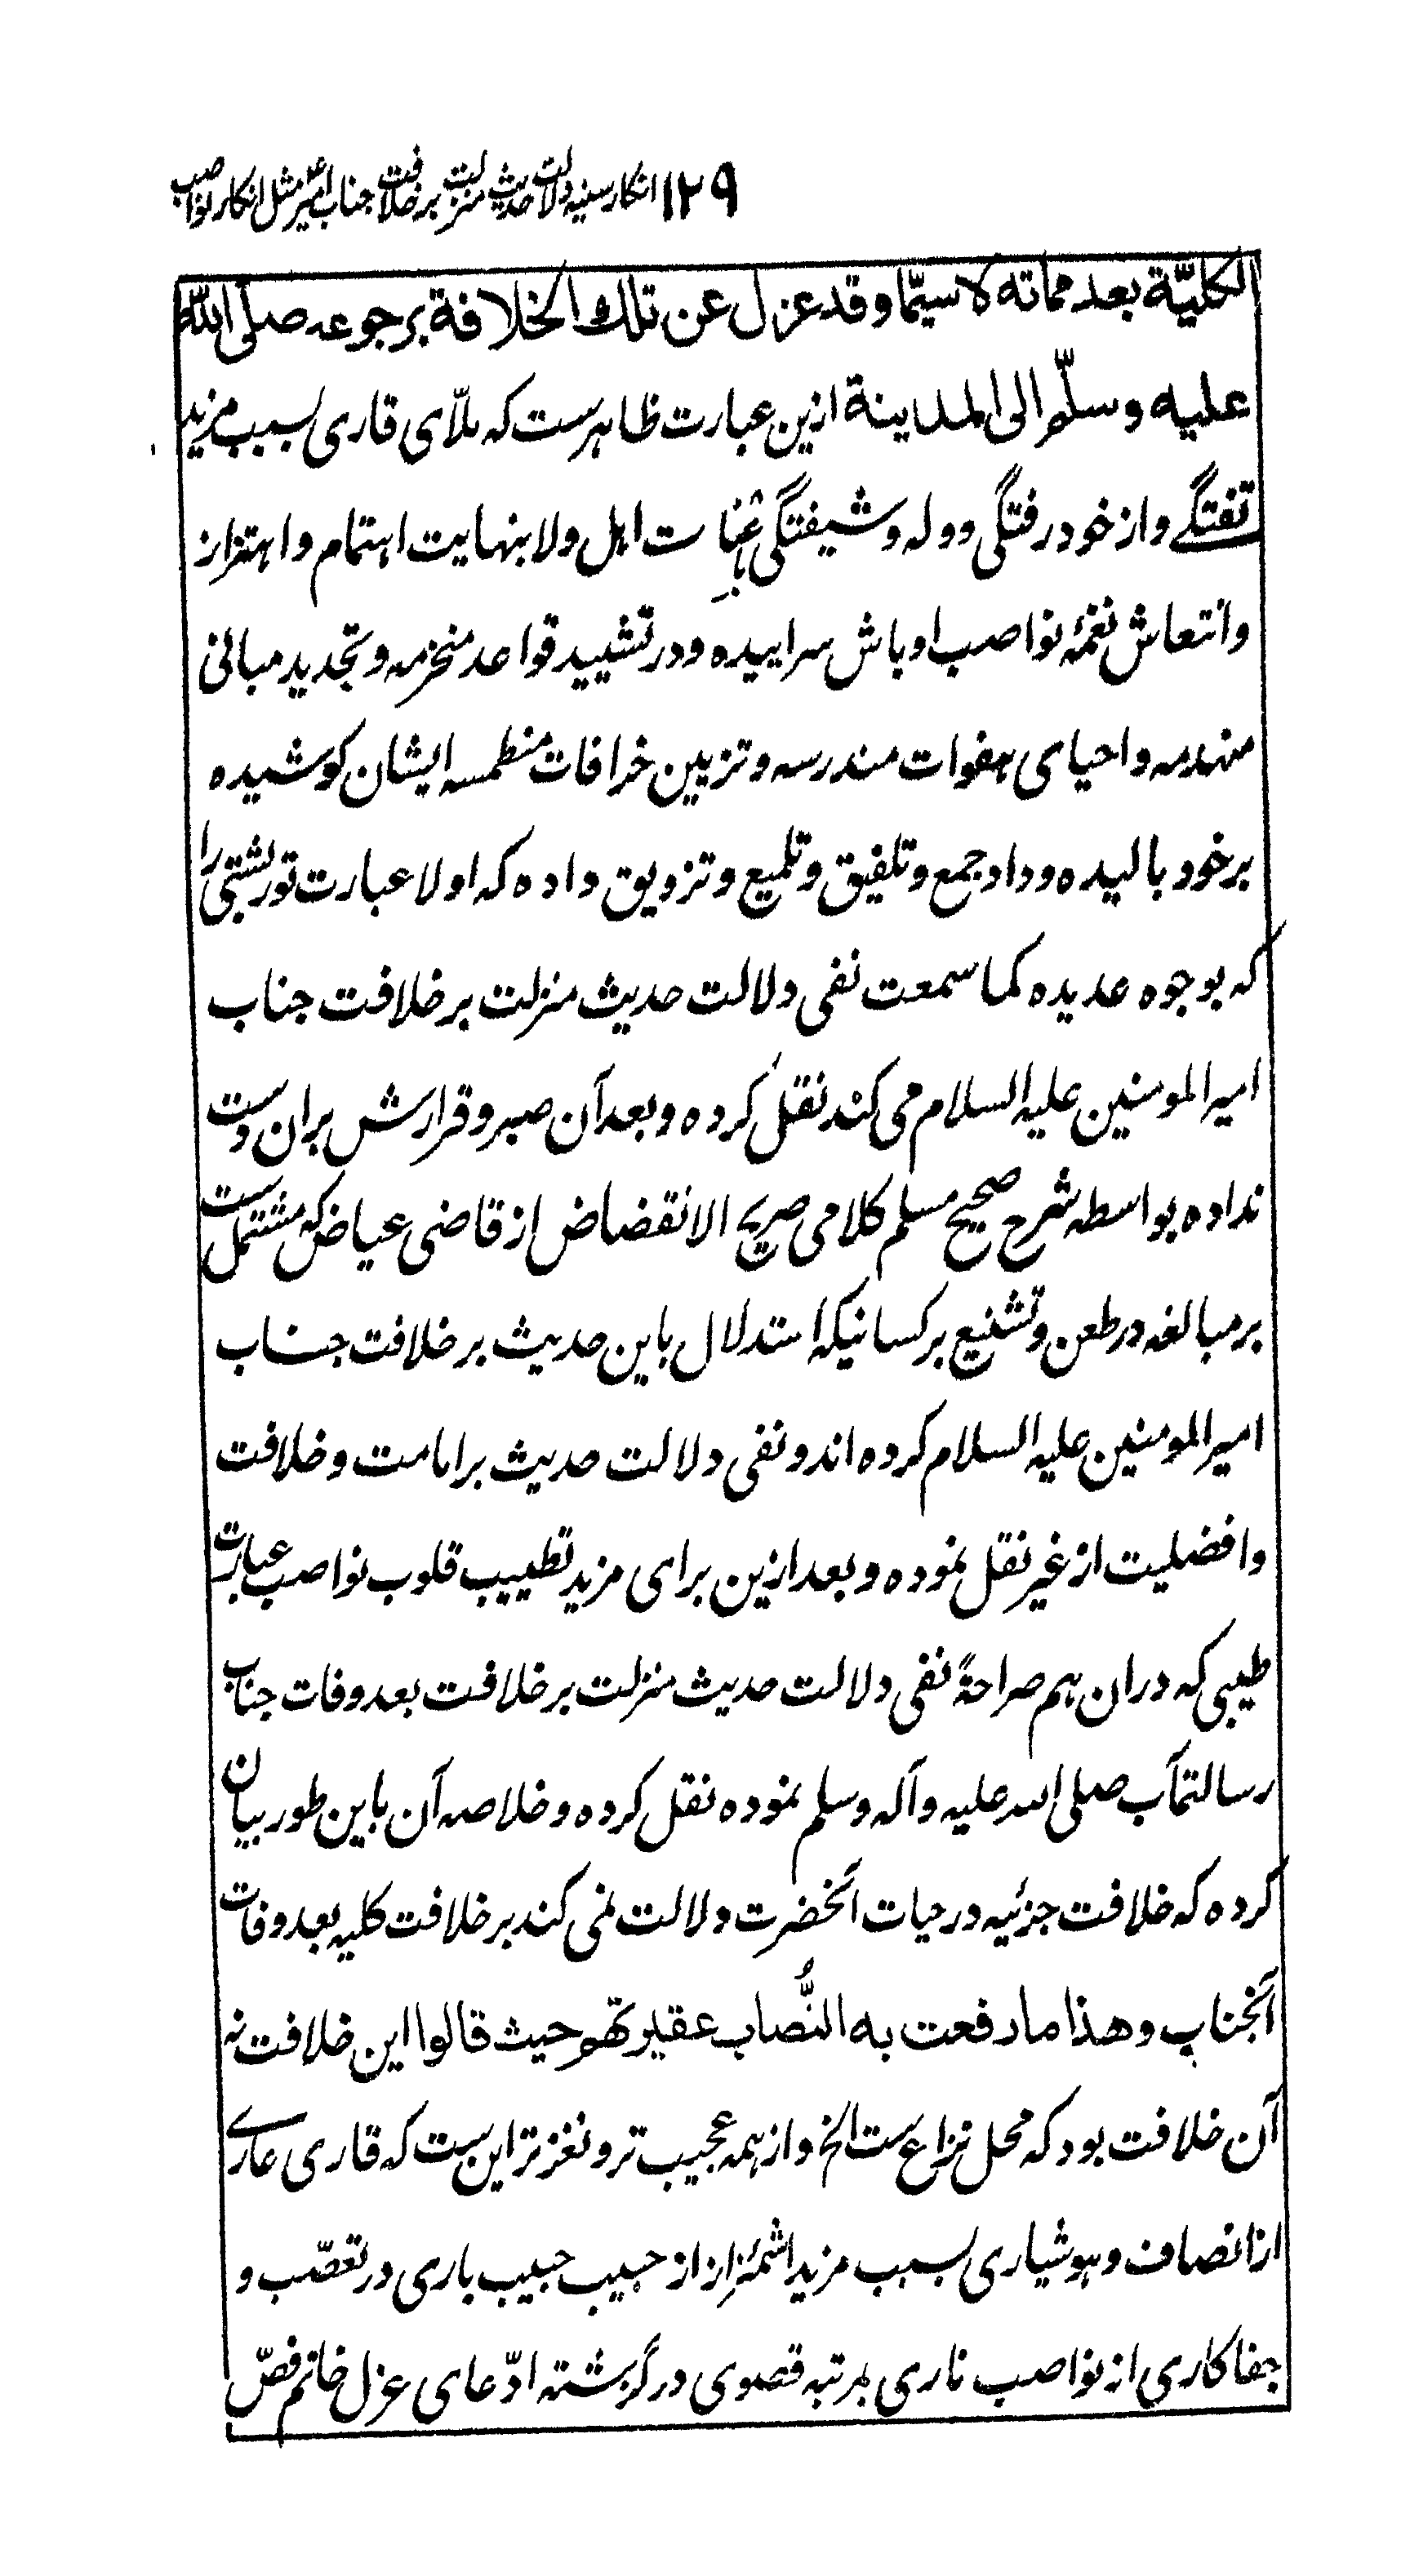 ۱۲۹ انکار سنیه دلالت حدیث منزلت بر خلافت جناب امیرؑ مثل انکار نواصب
الکلیّة بعد مماته لا سیّما و قد عزل عن تلك الخلافة برجوعه صلی الله
علیه و سلّم الی المدینة ازین عبارت ظاهرست که ملّای قاری بسبب مزید
تفتگے و از خود رفتگی و وله و شیفتگی اهل ولا بنهایت اهتمام و اهتزاز
و انتعاش نغمۀ نواصب اوباش سراییده و در تشیید قواعد منخرمه و تجدید مبانی
منهدمه و احیای هفوات مندرسه و تزیین خرافات منطمسه ایشان کوشیده
بر خود بالیده و داد جمع و تلفیق و تلمیع و تزویق داده که اولا عبارت تورپشتی را
که بوجوه عدیده کما سمعت نفی دلالت حدیث منزلت بر خلافت جناب
امیر المومنین علیه السلام می کند نقل کرده و بعد آن صبر و قرارش بران دست
نداده بواسطه شرح صحیح مسلم کلامی صریح الانقضاض از قاضی عیاض که مشتمل ست
بر مبالغه در طعن و تشنیع بر کسانیکه استدلال باین حدیث بر خلافت جناب
امیر المومنین علیه السلام کرده اند و نفی دلالت حدیث بر امامت و خلافت
و افضلیت از غیر نقل نموده و بعد ازین برای مزید تطییب قلوب نواصب عبارت
طیبی که دران هم صراحةً نفی دلالت حدیث منزلت بر خلافت بعد وفات جناب
رسالتمآب صلی الله علیه و آله و سلم نموده نقل کرده و خلاصه آن باین طور بیان
کرده که خلافت جزئیه در حیات آنحضرت دلالت نمی کند بر خلافت کلیه بعد وفات
آنجناب و هذا ما رفعت به النُّصاب عقیرتهم حیث قالوا این خلافت نه
آن خلافت بود که محل نزاع ست الخ و از همه عجیب تر و نغزتر این ست که قاری عارے
از انصاف و هوشیاری بسبب مزید اشمئزاز از حبیب حبیب باری در تعصّب و
جفا کاری از نواصب ناری بمرتبه قصوی در گزشته ادّعای عزل خاتم فصّ